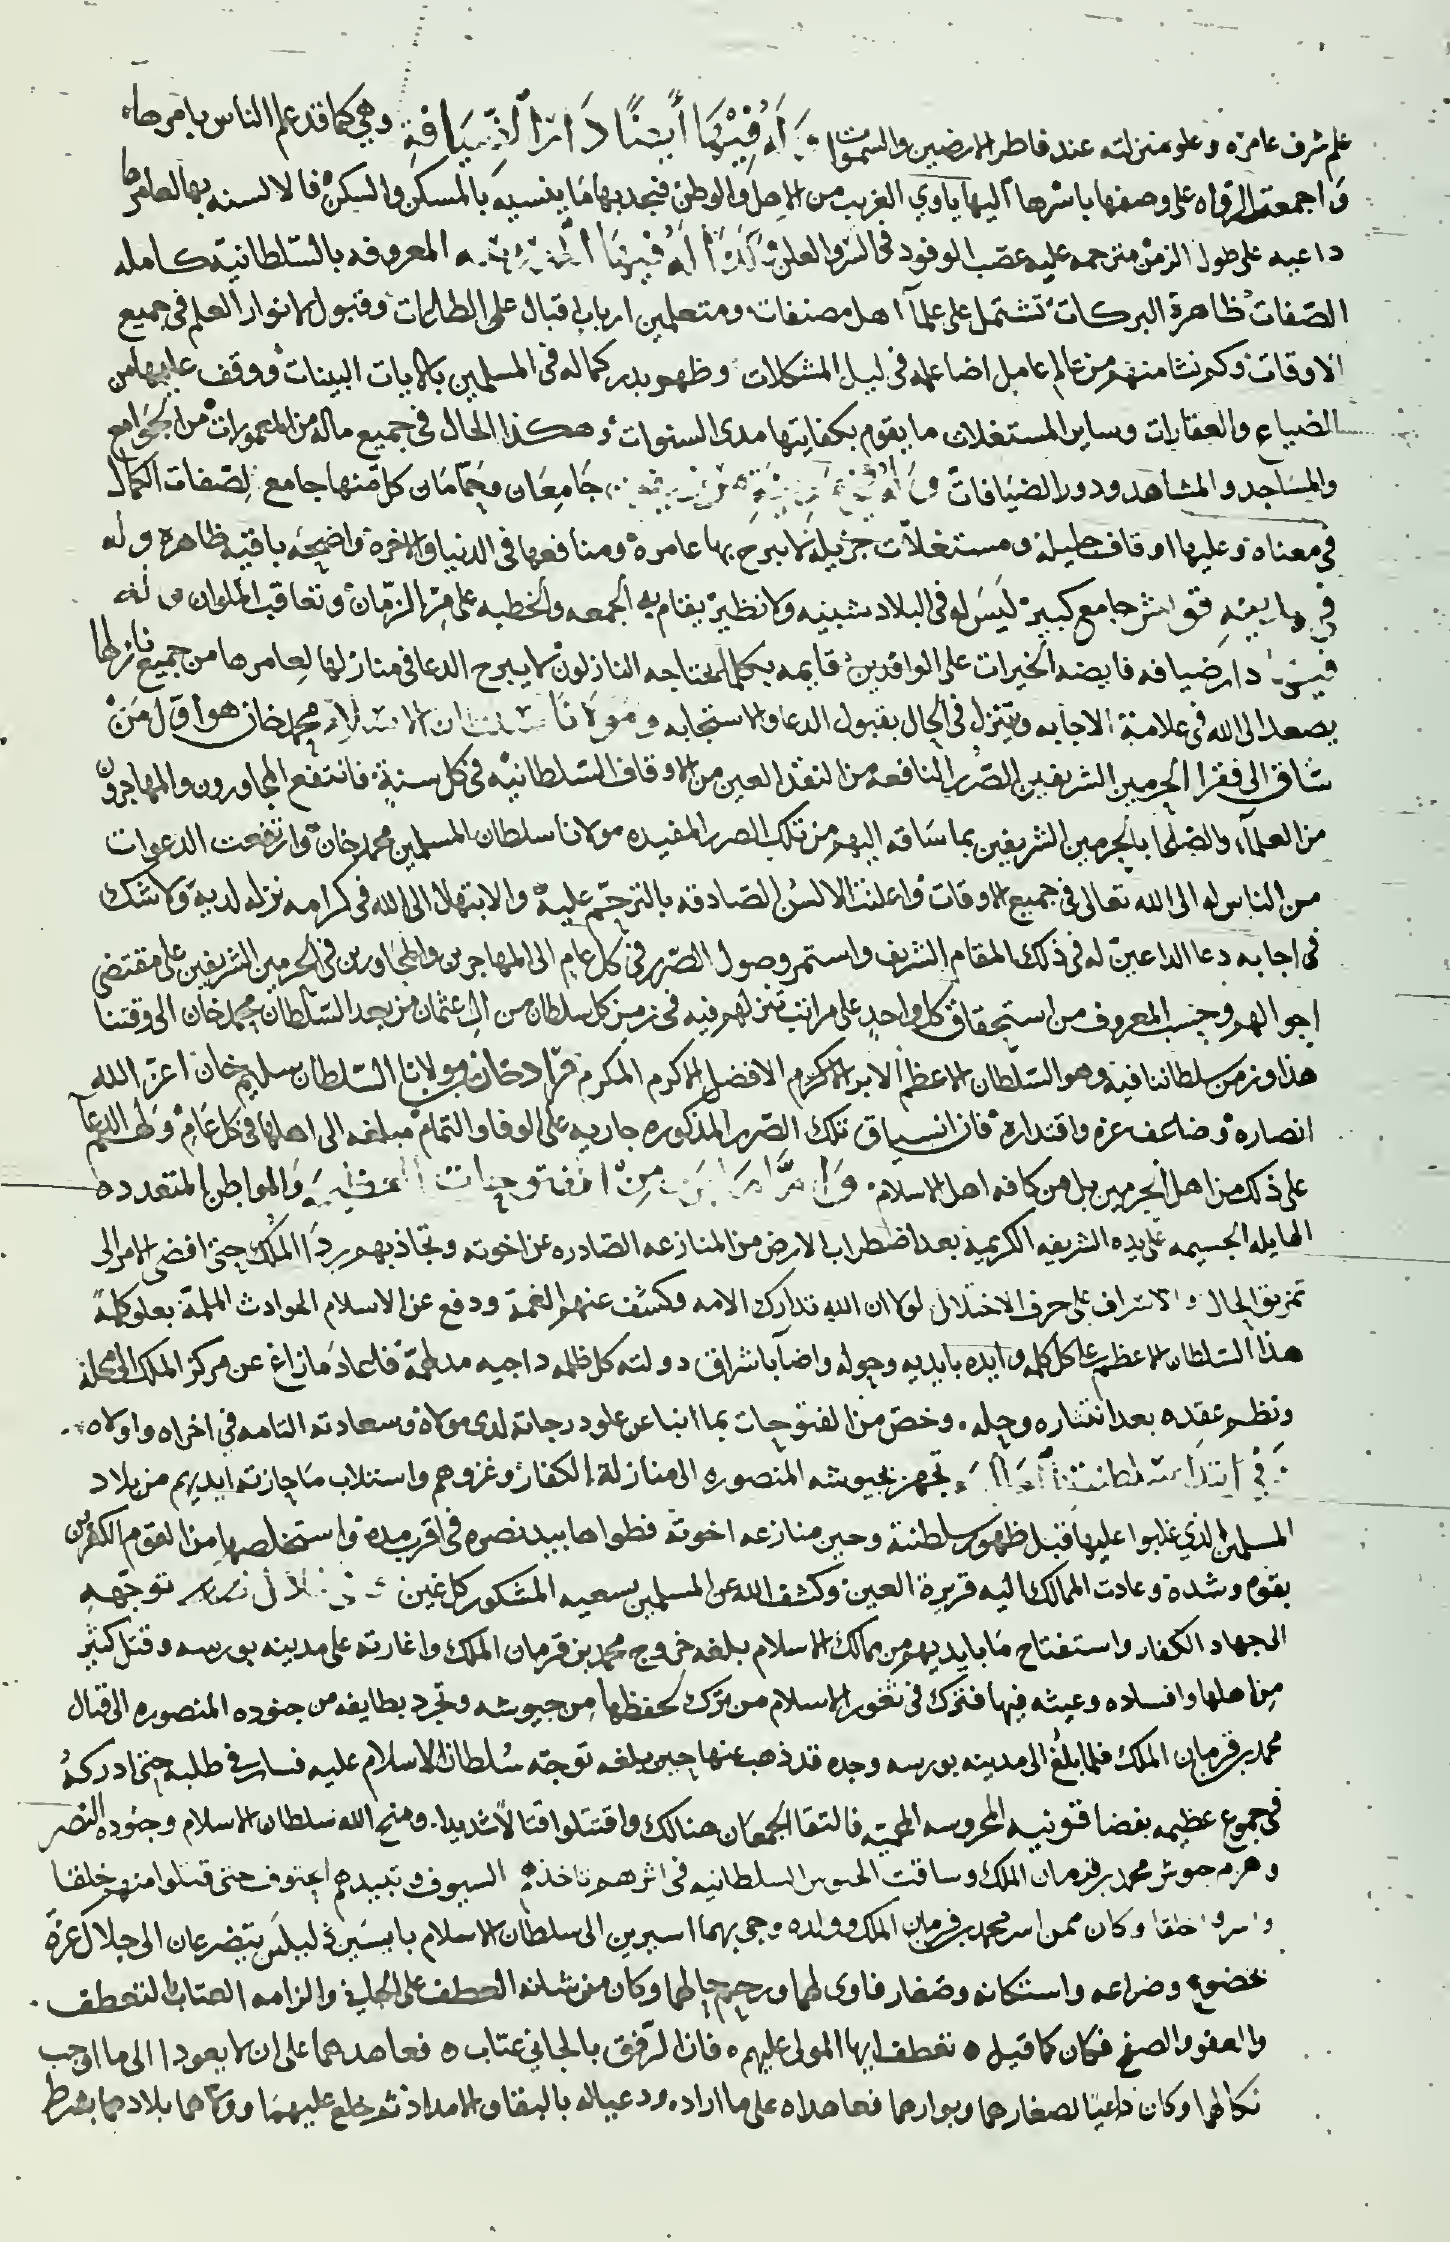 علم شرف عامرة وعلو منزلته عند فاطر الارضين والسموات وله فيها أيضًا دار الضيافة وهي كما قد علم الناس بامرها
واجمعت الرواه على وصفها باسرها اليها ياوي الغريب من الاهل والوطن فيجد بها ما ينسيه بالمسكن والسكن فالالسنه بها
داعيه على طول الزمن مترحمه عليه عقب الوفود في السر والعلن كذا له فيها المعروفه بالسلطانية كامله
الصفات ظاهرة البركات تشتمل على علمآ اهل مصنفات ومتعلمين ارباب اقبال على الطلبات وقبول لانوار العلم في جميع
الاوقات وكم نشا منهم من عالم عامل اضا علمه في ليل المشكلات وظهر بدر كماله في المسلمين بالايات البينات ووقف عليها من
الضياع والعقارات وساير المستغلات ما يقوم بكفايتها مدى السنوات وهكذا الحال في جميع ماله من المعمورات من الجوامع
والمساجد والمشاهد ودور الضيافات وله جامعان وحمامان كل منها جامع لصفات الكمال
في معناه وعليها اوقاف جليلة ومستغلات جزيله لا يبرح بها عامرة ومنافعها في الدنيا والاخرة واضحه باقيه ظاهرة وله
في جامع كبير ليس له في البلاد شبيه ولا نظير يقام به الجمعه والخطبه على مر الزمان وتعاقب الملوان وله
دار ضيافه فايضه الخيرات على الوافدين قايمه بكلما يحتاجه النازلون لا يبرح الدعا في منازلها لعامرها من جميع نازلها
يصعد الى الله في علامة الاجابه ويتنزل في الحال بقبول الدعا والاستجابه ومولانا سلطان الاسلام محمد خان هو اول من
ساق الى فقرا الحرمين الشريفين الصرر النافعة من النقد العين من الاوقاف السلطانيه في كل سنة فانتفع المجاورون والمهاجرون
من العلمآء والصلحا بالحرمين الشريفين بما ساقه اليهم من تلك الصرر المفيده مولانا سلطان المسلمين محمد خان وارتفعت الدعوات
من الناس له الى الله تعالى في جميع الاوقات واعلنت الالسن الصادقه بالترحم عليه والابتهال الى الله في كرامه نزله لديه ولا شك
في اجابه دعا الداعين له في ذلك المقام الشريف واستمر وصول الصرر في كل عام الى المهاجرين والمجاورين في الحرمين الشريفين على مقتضى
احوالهم وحسب المعروف من استحقاق كل واحد على مراتب تنزلهم فيه في زمن كل سلطان من ال عثمان من بعد السلطان محمد خان الى وقتنا
هذا وزمن سلطاننا فيه وهو السلطان الاعظم الابر الاكرم الافضل الاكرم المكرم مراد خان بن مولانا السلطان سليم خان اعز الله
انصاره وضاعف عزه واقتداره فان انسياق تلك الصرر المذكوره جاريه على الوفا والتمام مبلغه الى اهلها في كل عام ولهم الدعآ
على ذلك من اهل الحرمين بل من كافه اهل الاسلام من الفتوحات العظيمه والمواطن المتعدده
الهايله الجسيمه على يده الشريفه الكريمة بعد اضطراب الارض من المنازعه الصادره عن اخوته وتجاذبهم ردا الملك حتى افضى الامر الى
تمزيق الحال والاشراف على حرف الاختلال لولا ان الله تدارك الامه وكشف عنهم الغمة ودفع عن الاسلام الحوادث الملمة بعلو كلمة
هذا السلطان الاعظم على كل كلمه وايده بايديه وحوله واضآ باشراق دولته كل ظلمه داجيه مدلهمة فاعاد ما زاغ عن مركز الملك الى محله
ونظم عقده بعد انتثاره وحله وخص من الفتوحات بما انبا عن علو درجاته لدى مولاه وسعادته التامه في اخراه واولاه
في ابتدا سلطنته تجهز بجيوشه المنصوره الى منازلة الكفار وغزوهم واستلاب ما حازته ايديهم من بلاد
المسلمين الذي غلبوا عليها قبل ظهور سلطنته وحين منازعه اخوته فطواها بيد نصره في اقرب مدة واستخلصها من القوم الكفرين
بقوه وشده وعادت الممالك اليه قريرة العين وكشف الله عن المسلمين بسعيه المشكور كل غين توجهه
الى جهاد الكفار واستفتاح ما بايديهم من ممالك الاسلام بلغه خروج محمد بن قرمان الملك واغارته على مدينه بورسه وقتل كثير
من اهلها وافساده وعيثه فيها فترك في ثغور الاسلام من ترك لحفظها من جيوشه وتجرد بطايفه من جنوده المنصوره الى قتال
محمد بن قرمان الملك فلما بلغ الى مدينه بورسه وجده قد ذهب عنها حين بلغه توجه سلطان الاسلام عليه فسار في طلبه حتى ادركه
في جموع عظيمه بفضا قونيه المحروسه المحميه فالتقا الجمعان هنالك واقتتلوا قتالا شديدا ومنح الله سلطان الاسلام وجنوده النصر
وهزم جيوش محمد بن قرمان الملك وساقت الجيوش السلطانيه في اثرهم تاخذهم السيوف وتبيدهم الحتوف حتى قتلوا منهم خلقا
واسروا خلقا وكان ممن اسر محمد بن قرمان الملك وولده وجي بهما اسيرين الى سلطان الاسلام يتضرعان الى جلال عزة
بخضوع وضراعه واستكانه وصغار فاوى لهما ورحم حالهما وكان من شانه العطف على والزامه العتاب والتعطف
والعفو والصفح فكان كما قيل تعطف ايها المولى عليهم فان الرفق بالجاني عتاب فعاهدهما على ان لا يعودا الى ما اوجب
نكالهما وكان داعيا لصغارهما وبوارهما فعاهداه على ما اراد ودعيا له بالبقا والامداد ثم خلع عليهما وولاهما بلادهما بشرط